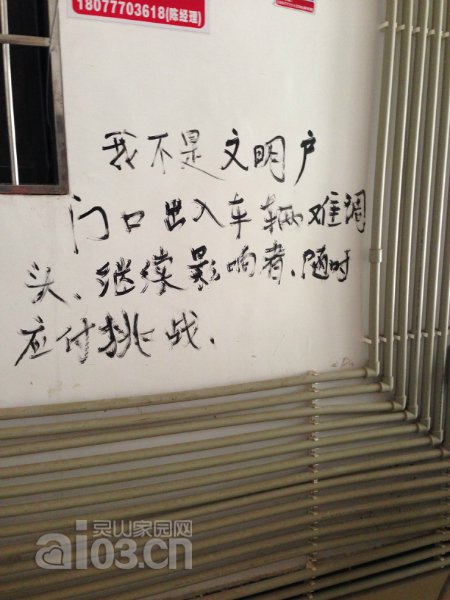 18077703618(陈经理)
我不是文明户
门口出入车辆难调
头、继续影响者、随时
应付挑战.
灵山家园网
aio3.cn